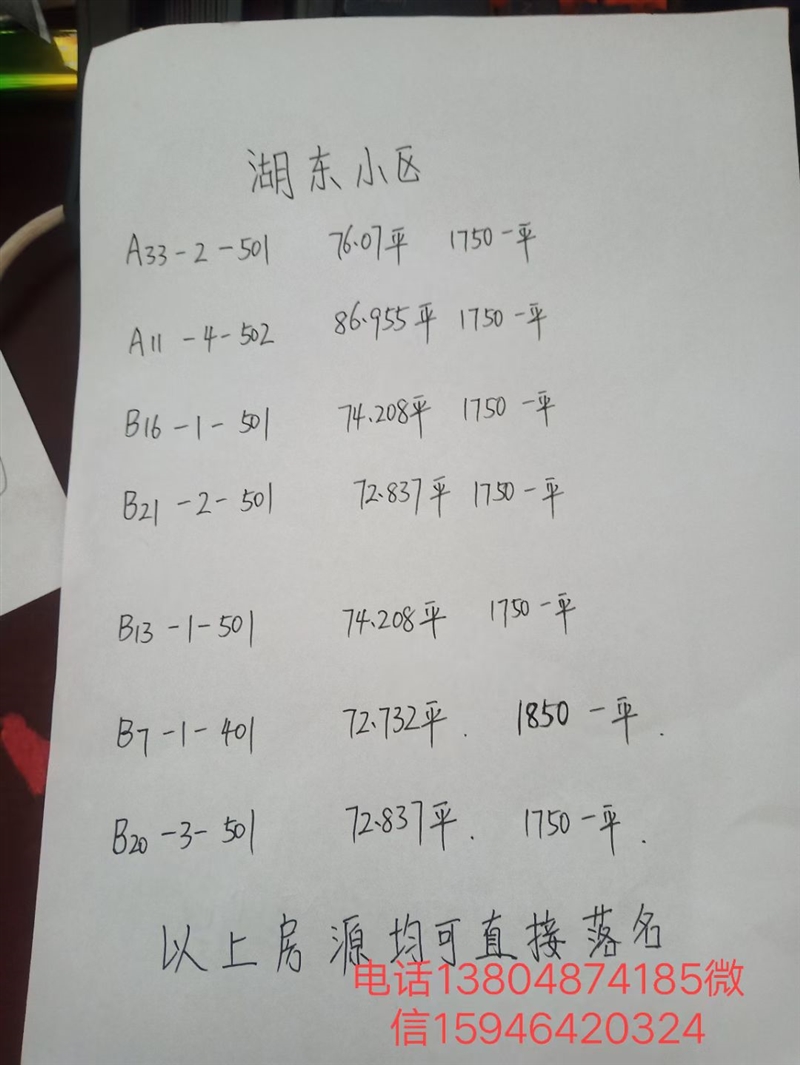 湖东小区
A33-2-501 76.07平 1750一平
A11-4-502 86.955平 1750一平
B16-1-501 74.208平 1750一平
B21-2-501 72.837平 1750一平
B13-1-501 74.208平 1750一平
B7-1-401 72.732平. 1850一平.
B20-3-501 72.837平. 1750一平.
以上房源均可直接落名
电话13804874185微
信15946420324